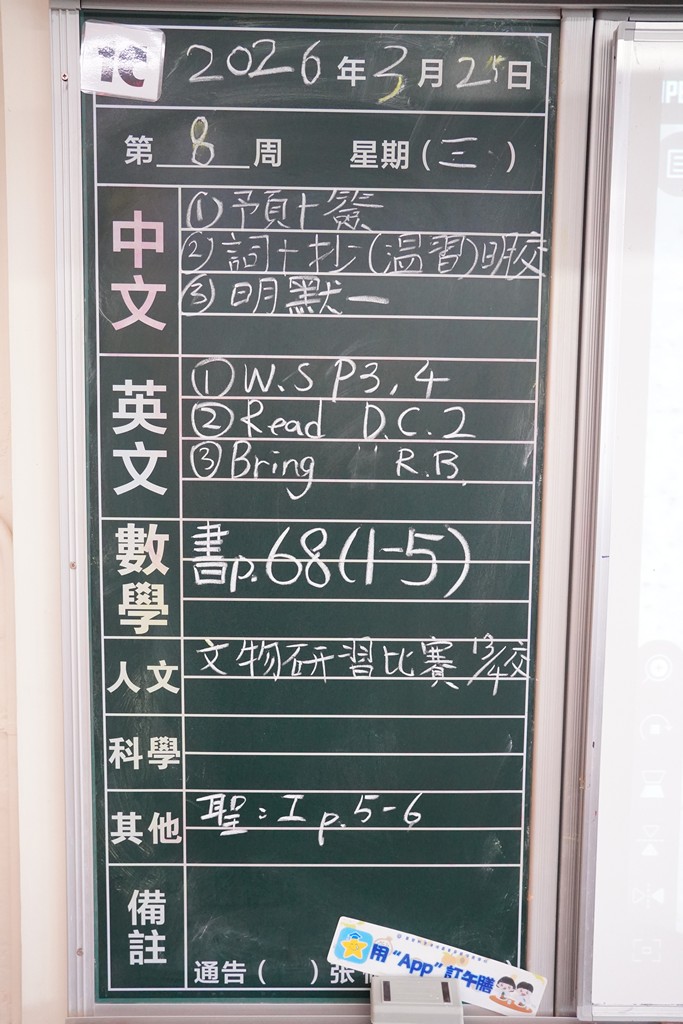 1C 2026年3月25日
第8周 星期(三)
中文
①預+簽
②詞+抄(温習)明交
③明默一
英文
①W.S P3, 4
②Read D.C.2
③Bring " R.B.
數學
書p.68(1-5)
人文
文物研習比賽 13/4交
科學
其他
聖:I p.5-6
備註
通告( )張
用“App”訂午膳